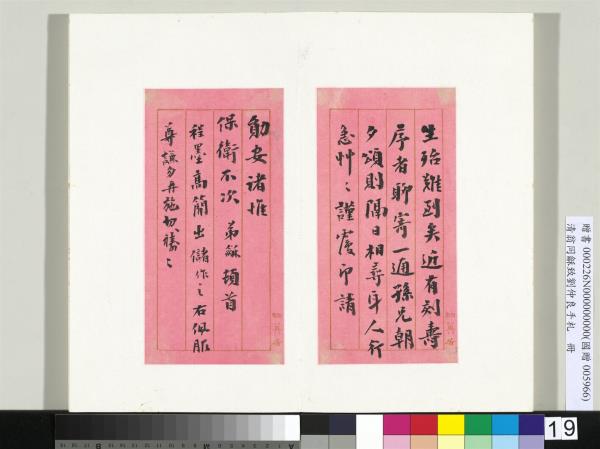 生殆難到矣近有刻壽
序者聊寄一通孫兄朝
夕頌則隔日相尋耳人行
急艸〻謹覆即請
勛安諸惟
保衛不次 弟龢頓首
程墨高簡出儲作之右佩服
尊謙勿再施切禱〻
贈書 000226N000000000(國贈 005966)
清翁同龢致劉仲良手札 冊
19